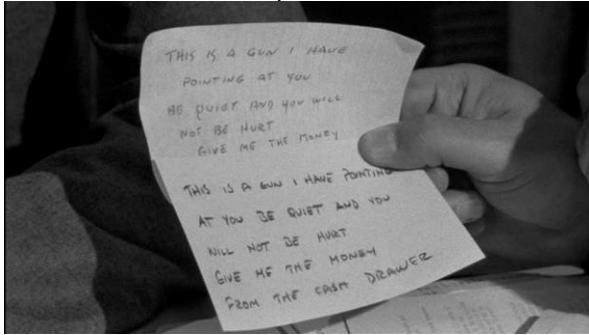 THIS IS A GUN I HAVE
POINTING AT YOU
BE QUIET AND YOU WILL
NOT BE HURT
GIVE ME THE MONEY
THIS IS A GUN I HAVE POINTING
AT YOU BE QUIET AND YOU
WILL NOT BE HURT
GIVE ME THE MONEY
FROM THE CASH DRAWER